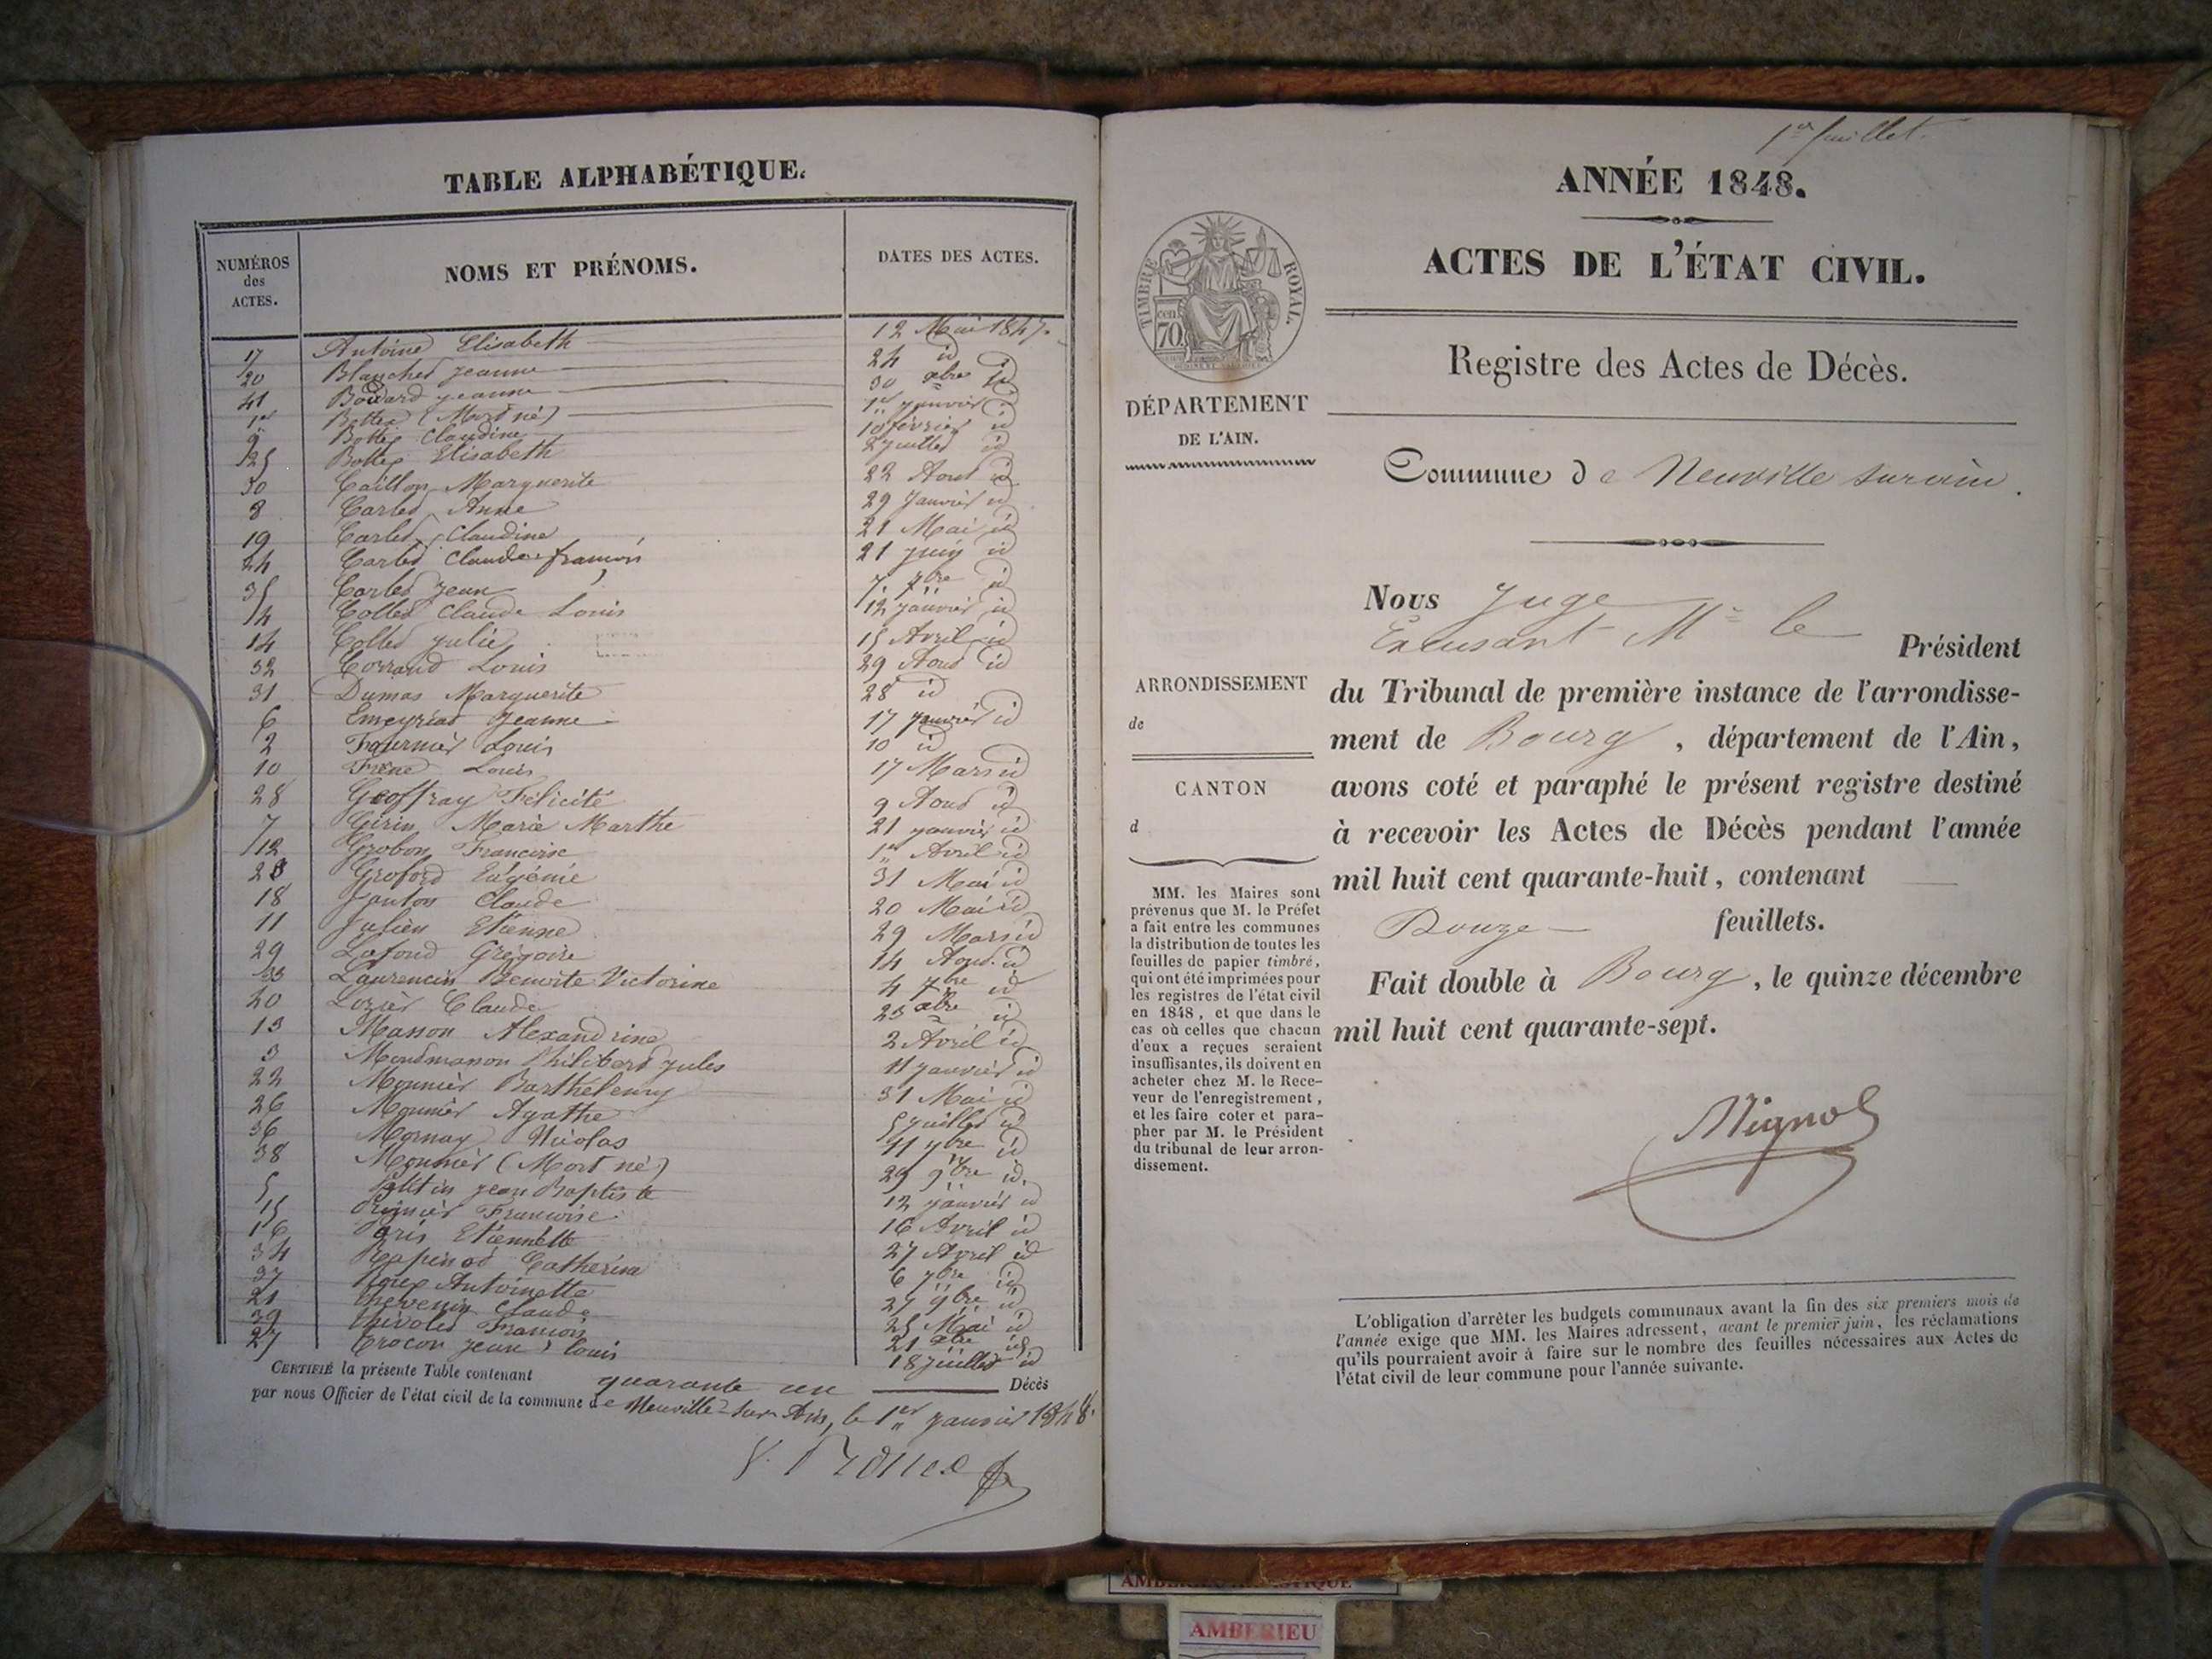 TABLE ALPHABÉTIQUE.
NUMÉROS des ACTES.
NOMS ET PRÉNOMS.
DATES DES ACTES.
17 Antoine Elisabeth 12 Mai 1847.
20 Blanched Jeanne 24 id
41 Bodard Jeanne 30 xbre id
1er Bottex (Mort né) 1er janvier id
9 Bottex Claudine 10 février id
25 Bottex Elisabeth 2 juillet id
30 Caillon Marguerite 22 Aout id
8 Carled Anne 29 Janvier id
19 Carled Claudine 21 Mai id
24 Carled Claude françois 21 juin id
35 Carled Jean 7. 7bre id
4 Colled Claude Louis 12 janvier id
14 Colled Julie 15 Avril id
32 Corraud Louis 29 Aout id
31 Dumas Marguerite 28 id
6 Emeyriat Jeanne 17 janvier id
2 Fournier Louis 10 id
10 Frene Louis 17 Mars id
28 Geoffray Félicité 9 Aout id
7 Girin Marie Marthe 21 janvier id
12 Grobon Françoise 1er Avril id
23 Groford Eugénie 31 Mai id
18 Janton Claude 20 Mai id
11 Julien Etienne 29 Mars id
29 Lafond Grégoire 14 Aout id
33 Laurencin Benoite Victorine 4 7bre id
40 Lozier Claude 23 xbre id
13 Masson Alexandrine 2 Avril id
3 Mondmasson Philibert Jules 11 janvier id
22 Monnier Barthélemy 31 Mai id
26 Monnier Agathe 5 juillet id
36 Mornay Nicolas 11 9bre id
38 Monnier (Mort né) 29 9bre id.
5 Petitin Jean Baptiste 12 janvier id
15 Françoise 16 Avril id
16 Paris Etiennette 27 Avril id
34 Rapinod Catherine 6 7bre id
37 Antoinette 27 9bre id
21 Thevenin Claude 25 Mai id
39 Thivolet François 21 xbre id
27 Trocon Jean Louis 18 juillet id
CERTIFIÉ la présente Table contenant quarante un Décès
par nous Officier de l'état civil de la commune de Neuville-sur-Ain, le 1er janvier 1848.
1er feuillet.
ANNÉE 1848.
ACTES DE L'ÉTAT CIVIL.
TIMBRE ROYAL.
70 cen
Registre des Actes de Décès.
DÉPARTEMENT
DE L'AIN.
Commune de Neuville sur ain.
Nous Juge
Excusant Mr le Président
ARRONDISSEMENT
de
CANTON
d
du Tribunal de première instance de l'arrondisse-
ment de Bourg, département de l'Ain,
avons coté et paraphé le présent registre destiné
à recevoir les Actes de Décès pendant l'année
mil huit cent quarante-huit, contenant
Douze feuillets.
Fait double à Bourg, le quinze décembre
mil huit cent quarante-sept.
MM. les Maires sont
prévenus que M. le Préfet
a fait entre les communes
la distribution de toutes les
feuilles de papier timbré,
qui ont été imprimées pour
les registres de l'état civil
en 1848, et que dans le
cas où celles que chacun
d'eux a reçues seraient
insuffisantes, ils doivent en
acheter chez M. le Rece-
veur de l'enregistrement,
et les faire coter et para-
pher par M. le Président
du tribunal de leur arron-
dissement.
Mignot
L'obligation d'arrêter les budgets communaux avant la fin des six premiers mois de
l'année exige que MM. les Maires adressent, avant le premier juin, les réclamations
qu'ils pourraient avoir à faire sur le nombre des feuilles nécessaires aux Actes de
l'état civil de leur commune pour l'année suivante.
AMBERIEU